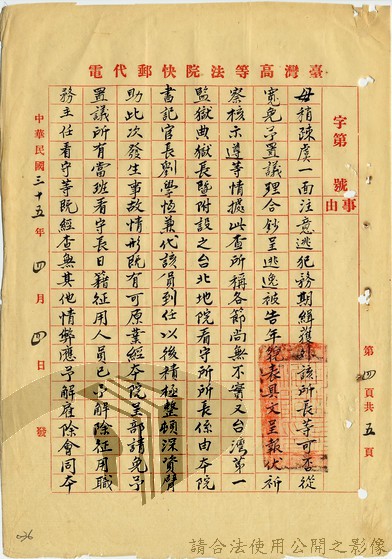 臺灣高等法院快郵代電
字第　號
事由
第四頁共五頁
毋稍陳虞一面注意逃犯務期緝獲該所長等可否從
寬免予置議理合鈔呈逃逸被告年貌表具文呈報伏祈
察核示遵等情據此查所稱各節尚無不實又台灣第一
監獄典獄長暨附設之台北地院看守所所長係由本院
書記官長劉學恆兼代該員到任以後積極整頓深資臂
助此次發生事故情形既有可原業經本院呈部請免予
置議所有當班看守長日籍征用人員已予解除征用職
務主任看守等既經查無其他情弊應予解雇除會同本
中華民國三十五年四月四日發
036
請合法使用公開之影像